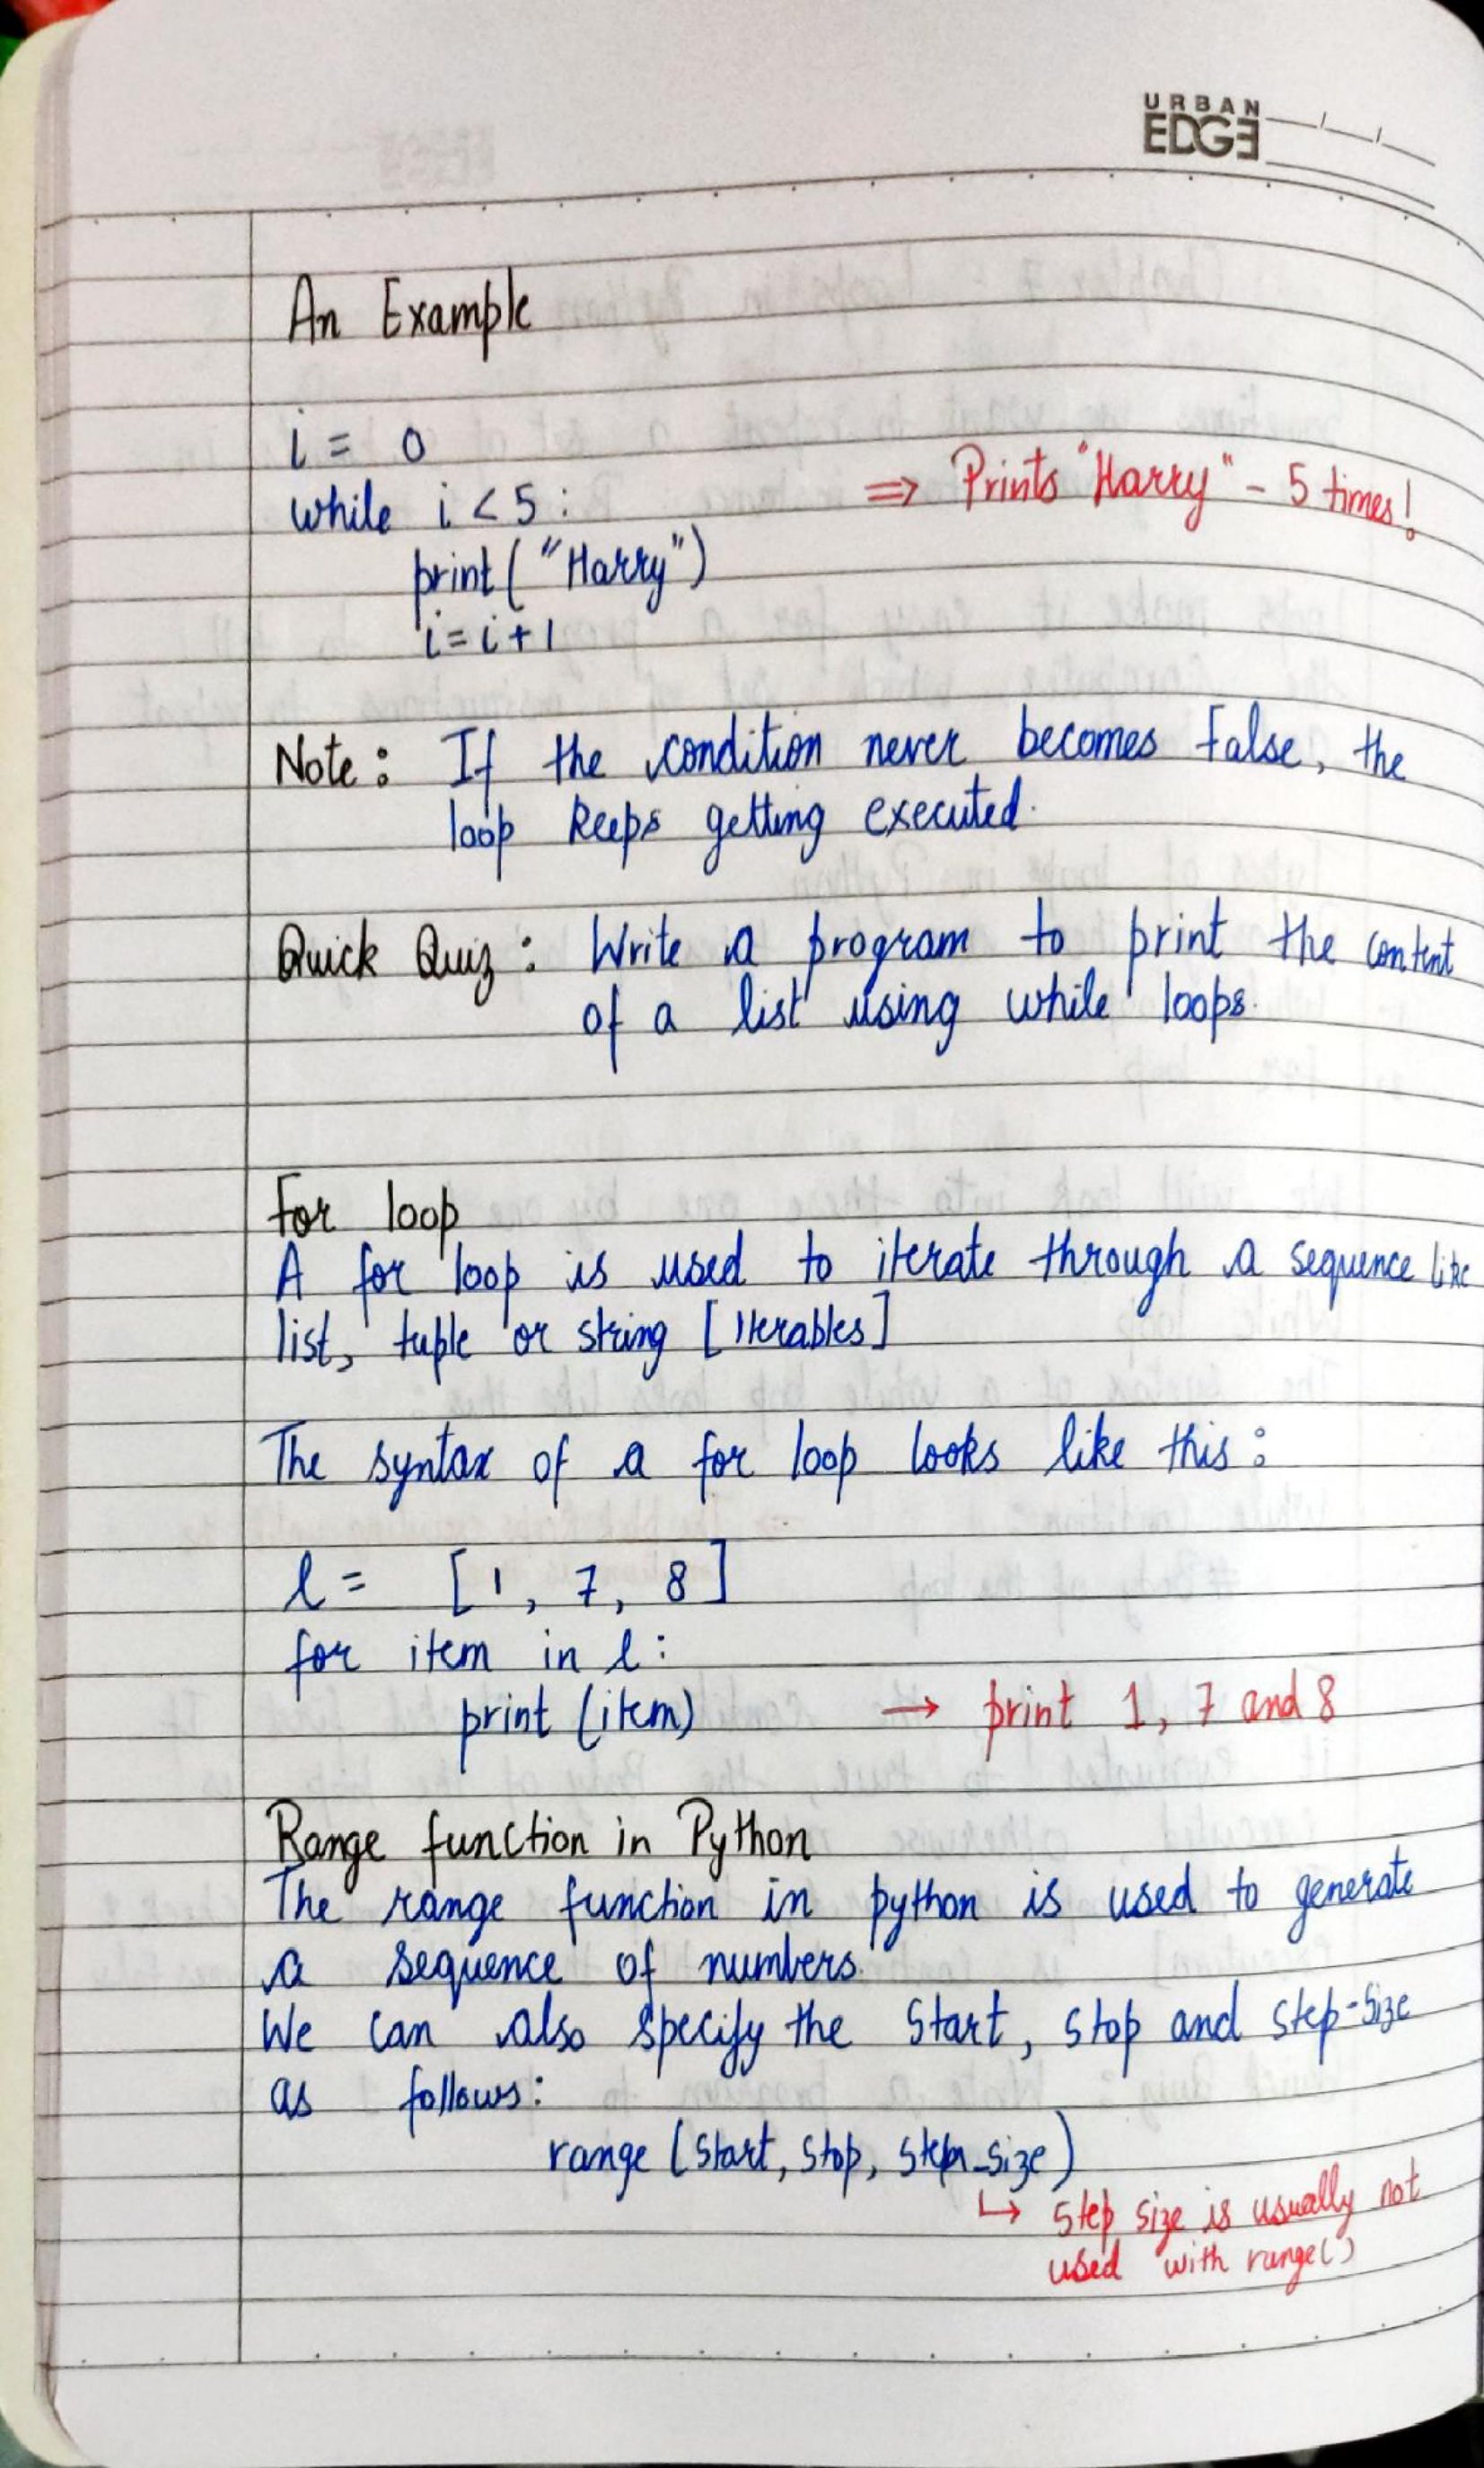 URBAN
EDGE
An Example
i = 0
while i < 5 : ⇒ Prints "Harry" - 5 times!
print ( "Harry")
i = i + 1
Note : If the condition never becomes false, the
loop keeps getting executed.
Quick Quiz : Write a program to print the content
of a list using while loops.
For loop
A for loop is used to iterate through a sequence like
list, tuple or string [iterables]
The syntax of a for loop looks like this :
l = [1, 7, 8]
for item in l :
print (item) → print 1, 7 and 8
Range function in Python
The range function in python is used to generate
a sequence of numbers.
We can also specify the start, stop and step-size
as follows :
range (start, stop, step_size)
↳ step size is usually not
used with range()